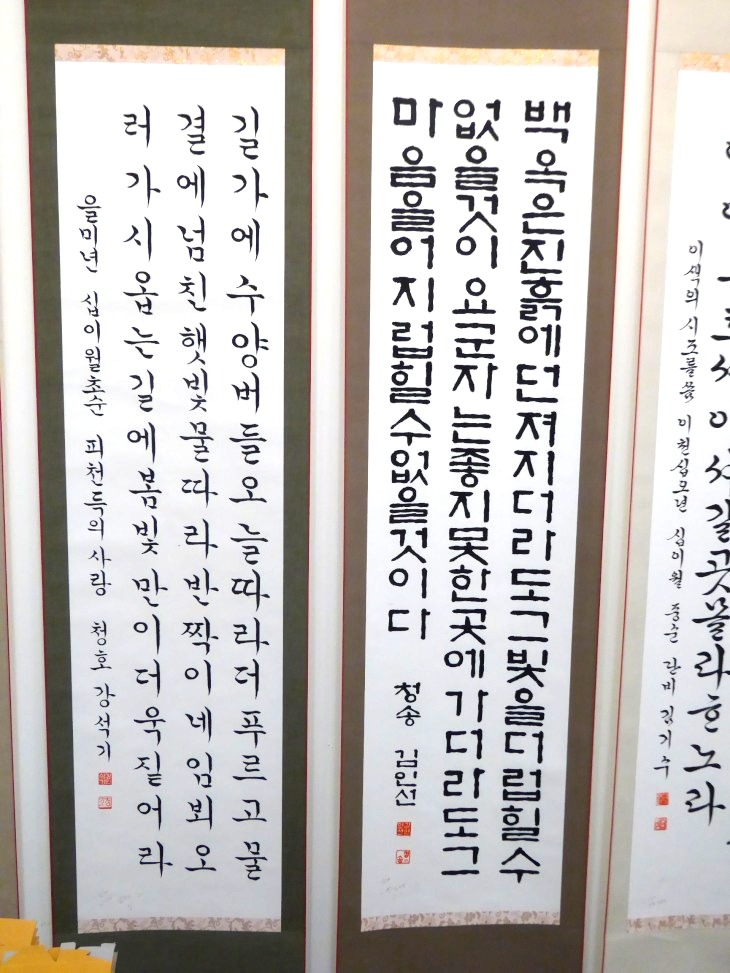 갈곳몰라ᄒᆞ노라
이색의 시조를 씀 이천십오년 십이월 중순 김기수
백옥은진흙에던져지더라도그빛을더럽힐수
없을것이요군자는좋지못한곳에가더라도그
마음을어지럽힐수없을것이다 청송 김인선
길가에수양버들오늘따라더푸르고물
결에넘친햇빛물따라반짝이네임뵈오
러가시옵는길에봄빛만이더욱짙어라
을미년 십이월초순 피천득의 사랑 청호 강석기